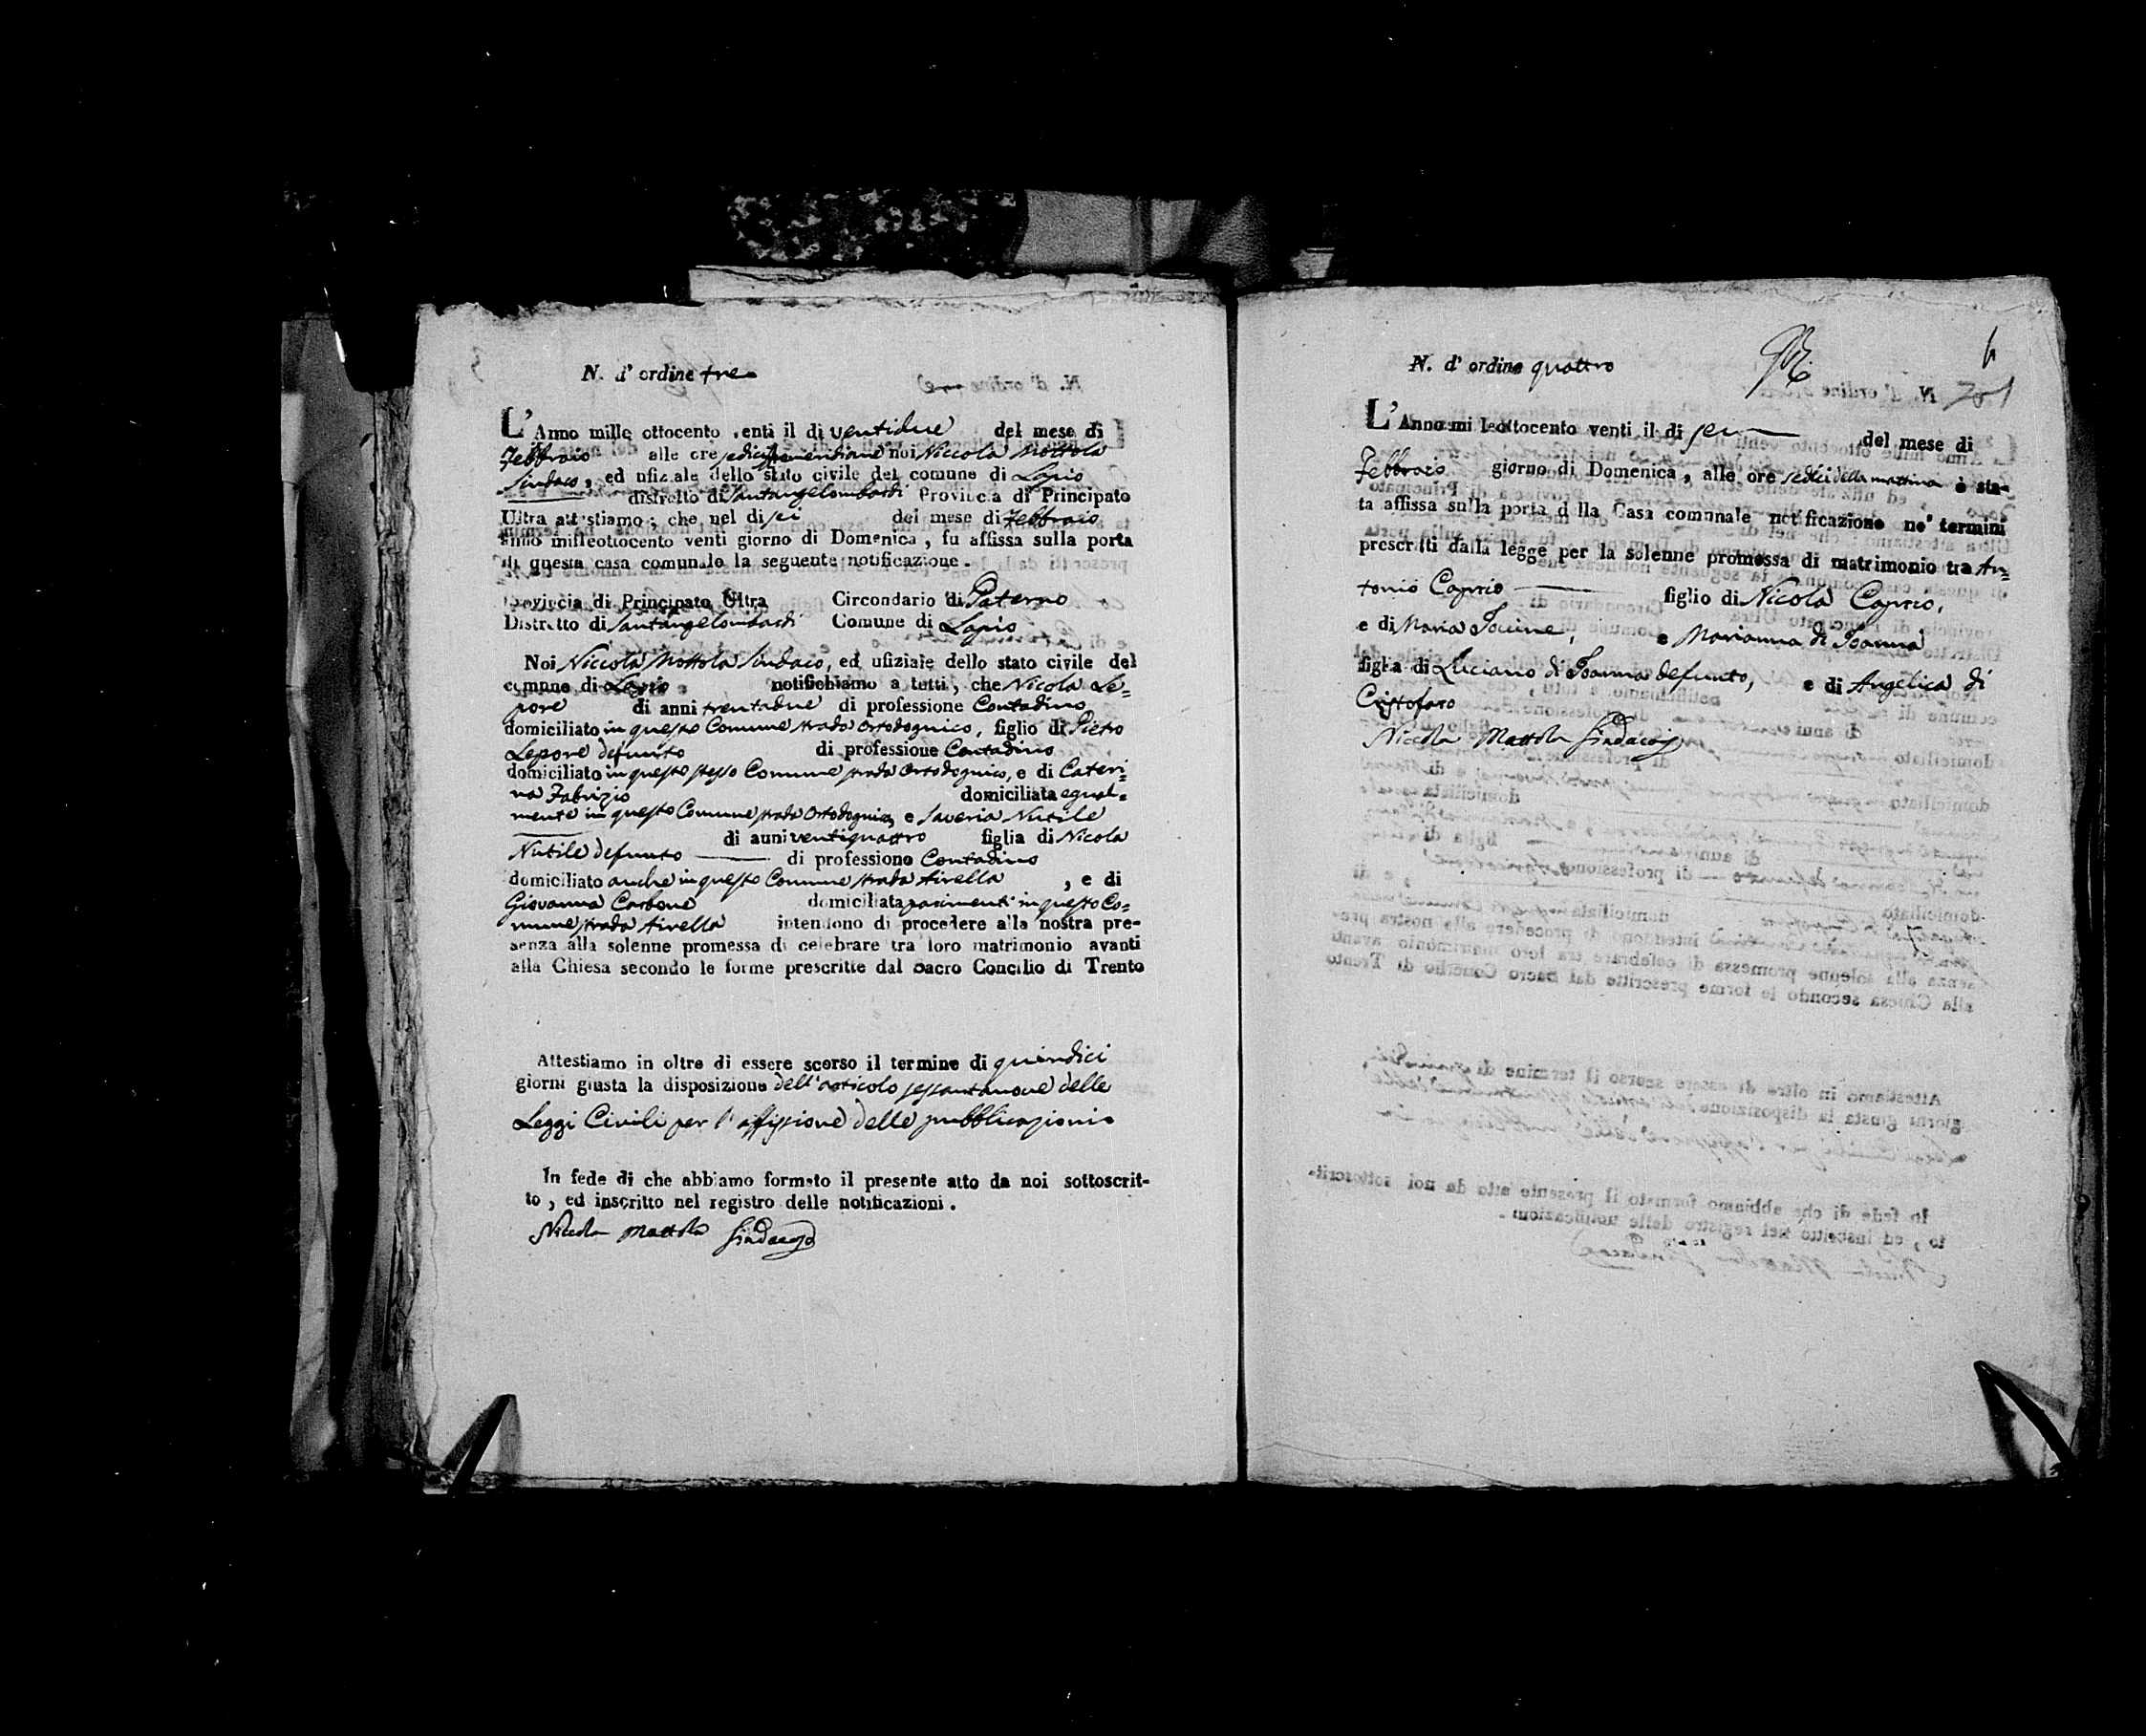 N. d' ordine tre
L'Anno mille ottocento venti il di ventidue del mese di
Febbraio alle ore sedici noi Niccola Mottola
Sindaco, ed ufiziale dello stato civile del comune di Lapio
distretto di Santangelombardi Provincia di Principato
Ultra attestiamo; che nel di sei del mese di Febbraio
anno milleottocento venti giorno di Domenica, fu affissa sulla porta
di questa casa comunale la seguente notificazione.
Provincia di Principato Ultra Circondario di Paterno
Distretto di Santangelombardi Comune di Lapio
Noi Niccola Mottola Sindaco, ed ufiziale dello stato civile del
comune di Lapio notifichiamo a tutti, che Nicola Le=
pore di anni trentadue di professione Contadino
domiciliato in questo Comune strada Ortodognico, figlio di Pietro
Lepore defunto di professione Contadino
domiciliato in questo stesso Comune strada Ortodognico, e di Cateri=
na Fabrizio domiciliata egual=
mente in questo Comune strada Ortodognico, e Saveria Nutile
di anni ventiquattro figlia di Nicola
Nutile defunto di professione Contadino
domiciliato anche in questo Comune strada Airella, e di
Giovanna Carbone domiciliata parimenti in questo Co=
mune strada Airella intendono di procedere alla nostra pre-
senza alla solenne promessa di celebrare tra loro matrimonio avanti
alla Chiesa secondo le forme prescritte dal sacro Concilio di Trento
Attestiamo in oltre di essere scorso il termine di quindici
giorni giusta la disposizione dell'articolo sessantanove delle
Leggi Civili per l'affissione delle pubblicazioni
In fede di che abbiamo formato il presente atto da noi sottoscrit-
to, ed inscritto nel registro delle notificazioni.
Niccola Mottola Sindaco
N. d' ordine quattro
L'Anno milleottocento venti il di sei del mese di
Febbraio giorno di Domenica, alle ore sedici della mattina è sta-
ta affissa sulla porta della Casa comunale notificazione ne' termini
prescritti dalla legge per la solenne promessa di matrimonio tra An=
tonio Caprio figlio di Nicola Caprio,
e di Maria e Marianna di Joanna
figlia di Luciano di Joanna defunto, e di Angelica di
Cristofaro
Niccola Mottola Sindaco